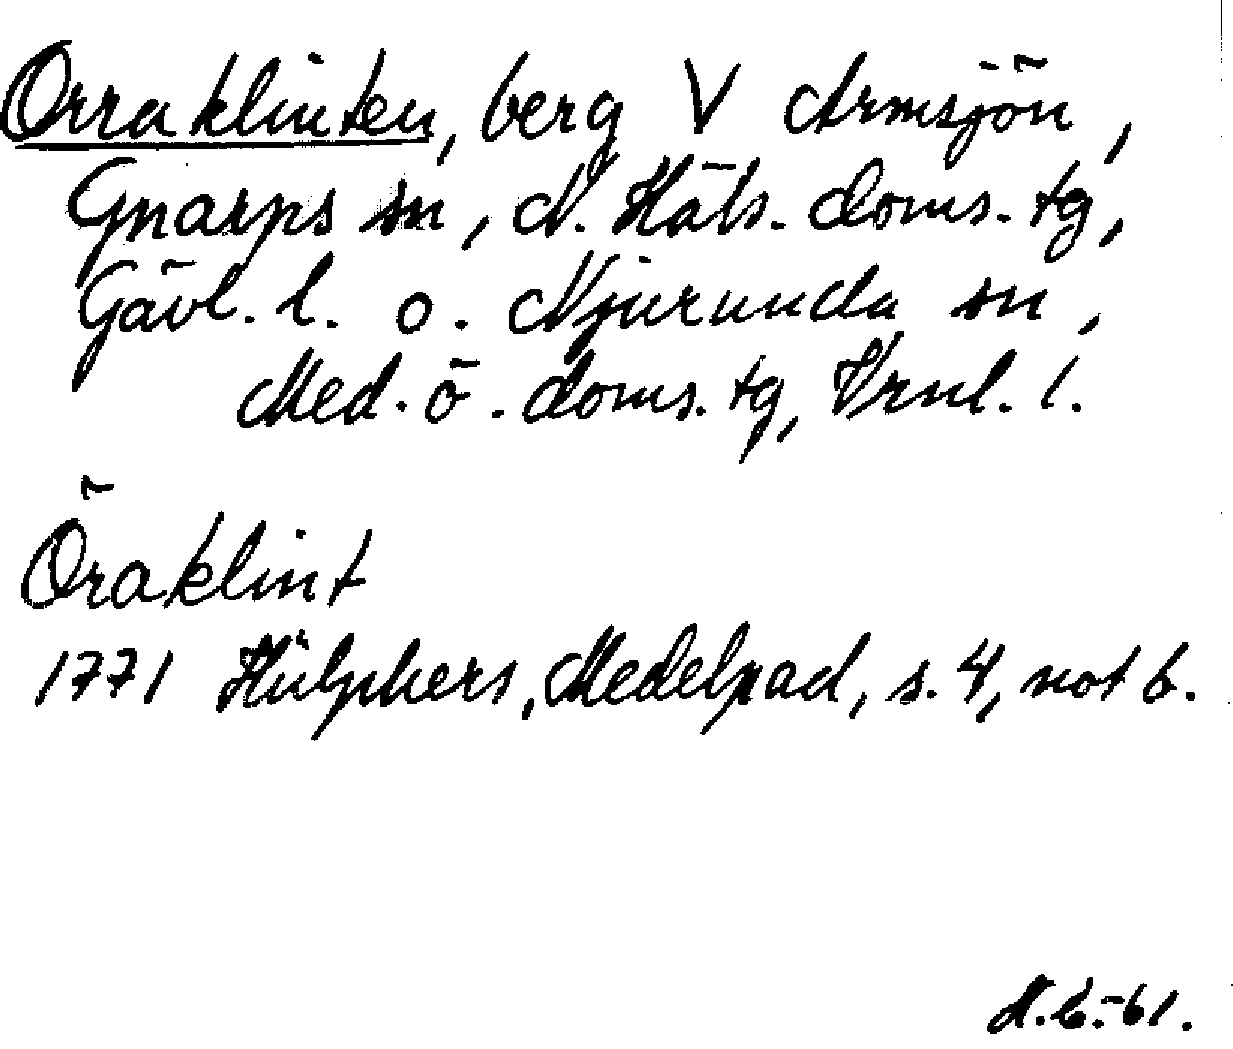 Orraklinten, berg V Armsjön,
Gnarps sn, N. Häls. doms. tg,
Gävl. l. o. Njurunda sn,
Med. ö. doms. tg, Vrnl. l.
Öraklint
1771 Hülphers, Medelpad, s. 4, not 6.
-61.